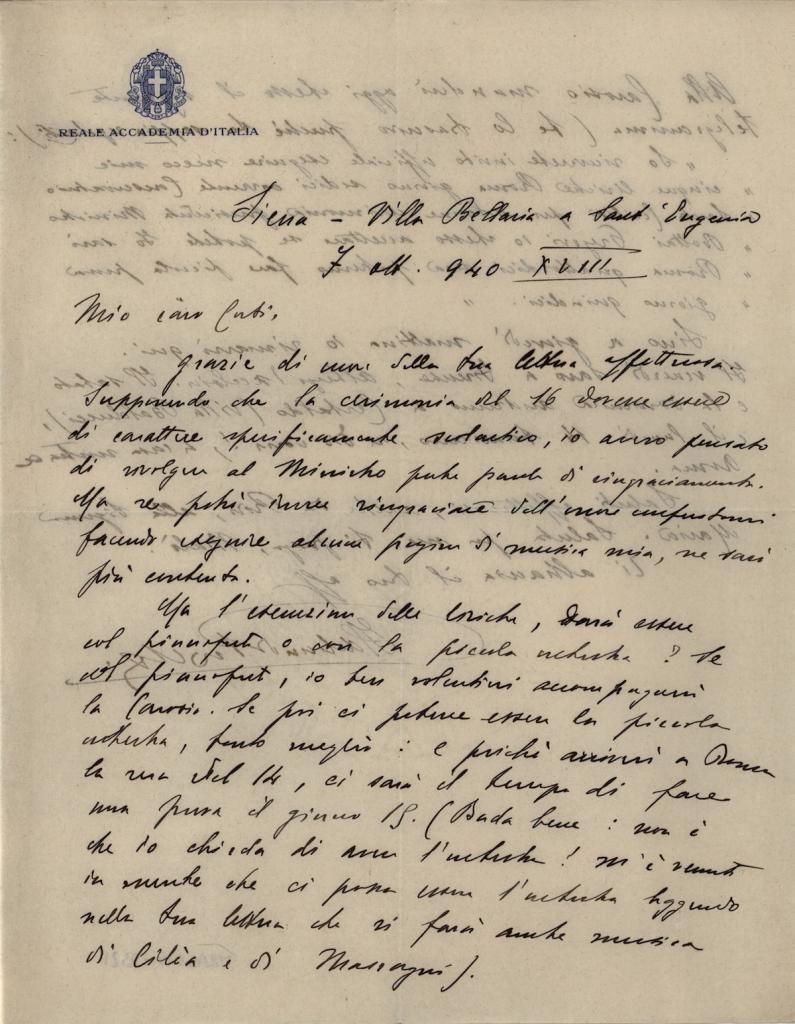 REALE ACCADEMIA D'ITALIA
Siena – Villa Bellaria a Sant'Eugenia
7 ott. 940 XVIII
Mio caro Corti,
grazie di cuore della tua lettera affettuosa.
Supponendo che la cerimonia del 16 dovesse essere
di carattere specificamente scolastico, io avevo pensato
di rivolgere al Ministro poche parole di ringraziamento.
Ma se potrò invece ringraziare dell'onore
facendo eseguire alcune pagine di musica mia, ne sarò
più contento.
Ma l'esecuzione delle liriche, dovrà essere
col pianoforte o con la piccola orchestra? Se
col pianoforte, io ben volentieri accompagnerò
la Carosio. Se poi ci potesse essere la piccola
orchestra, tanto meglio: e poichè arriverò a Roma
la sera del 14, ci sarà il tempo di fare
una prova il giorno 15. (Bada bene: non è
che io chieda di aver l'orchestra! m'è venuto
in mente che ci possa essere l'orchestra leggendo
nella tua lettera che si farà anche musica
di Cilèa e di Mascagni).